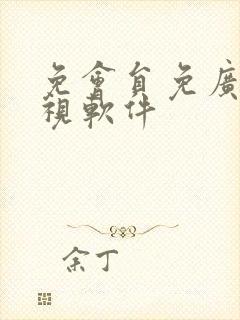 免會員免廣
視軟件
余丁